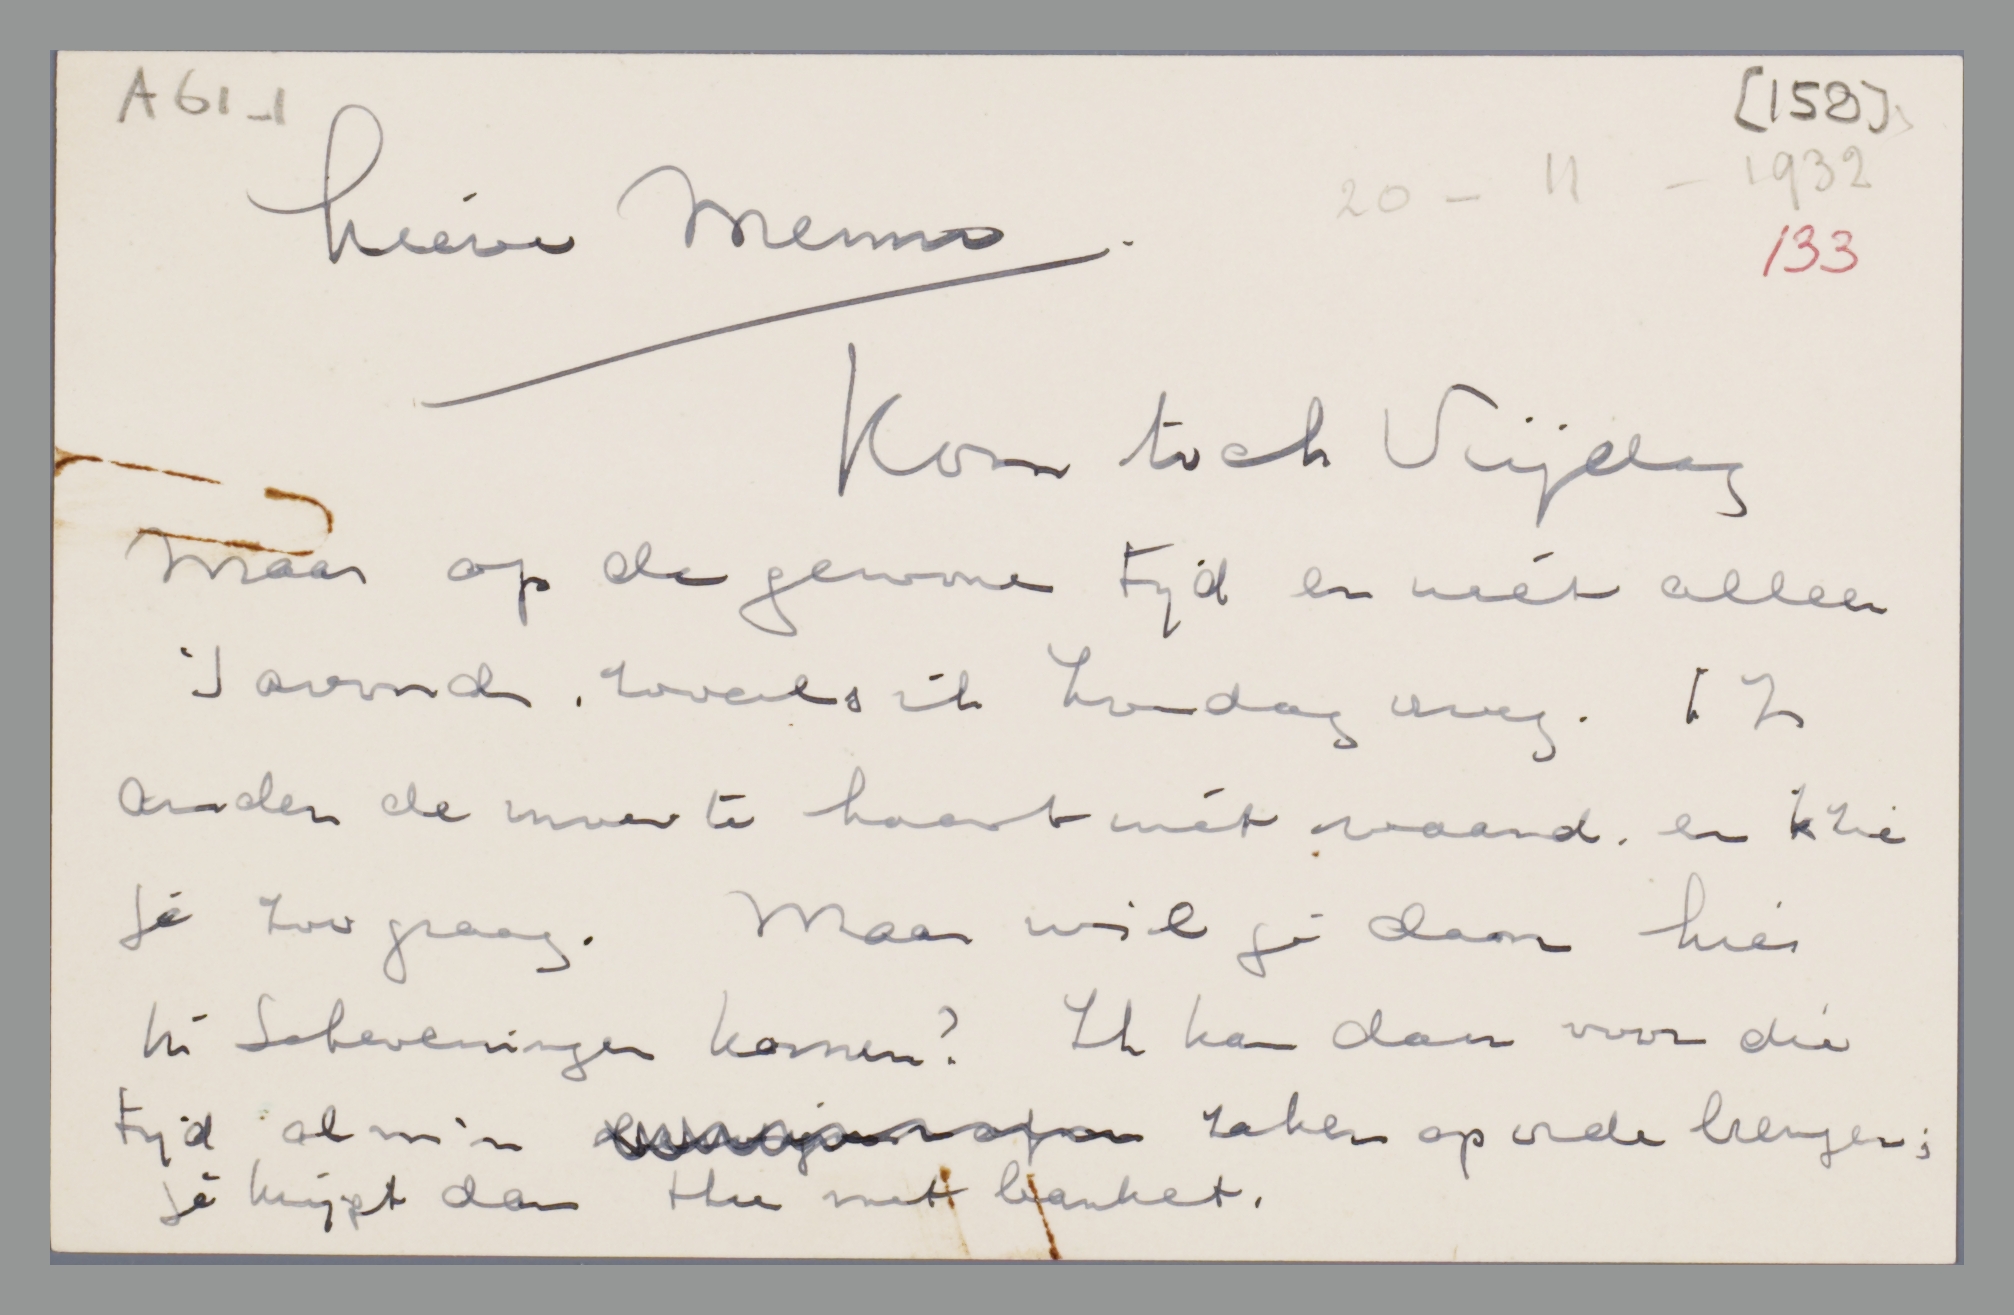 A61-1
[158]
20 - 11 - 1932
133
Lieve Menno.
Kom toch Vrijdag
Maar op de gewone tijd en niét alleen
's avonds. zooals ik Zondag vroeg. 't Is
anders de moeite haast niét waard. en k zie
je zoo graag. Maar wil je dan hier
in Scheveningen komen? Ik kan dan voor die
tijd al m'n zaken op orde brengen;
je krijgt dan thee met banket.